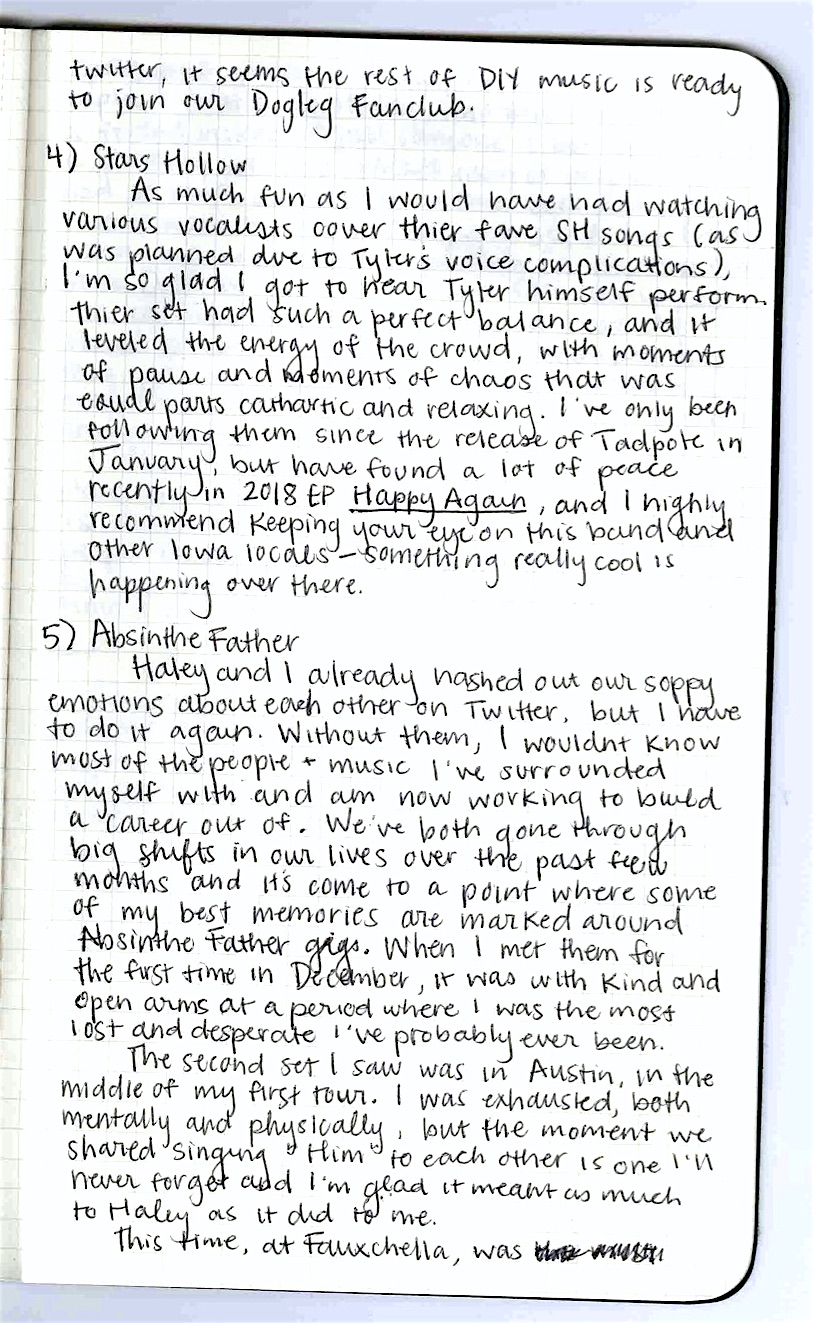 twitter, it seems the rest of DIY music is ready
to join our Dogleg Fanclub.
4) Stars Hollow
As much fun as I would have had watching
various vocalists cover thier fave SH songs (as
was planned due to Tyler's voice complications),
I'm so glad I got to hear Tyler himself perform.
thier set had such a perfect balance, and it
leveled the energy of the crowd, with moments
of pause and moments of chaos that was
equal parts cathartic and relaxing. I've only been
following them since the release of Tadpole in
January, but have found a lot of peace
recently in 2018 EP Happy Again, and I highly
recommend keeping your eye on this band and
other Iowa locals - something really cool is
happening over there.
5) Absinthe Father
Haley and I already hashed out our soppy
emotions about each other on Twitter, but I have
to do it again. Without them, I wouldnt know
most of the people + music I've surrounded
myself with and am now working to build
a career out of. We've both gone through
big shifts in our lives over the past few
months and it's come to a point where some
of my best memories are marked around
Absinthe Father gigs. When I met them for
the first time in December, it was with kind and
open arms at a period where I was the most
lost and desperate I've probably ever been.
The second set I saw was in Austin, in the
middle of my first tour. I was exhausted, both
mentally and physically, but the moment we
shared singing "Him" to each other is one I'll
never forget and I'm glad it meant as much
to Haley as it did to me.
This time, at Fauxchella, was